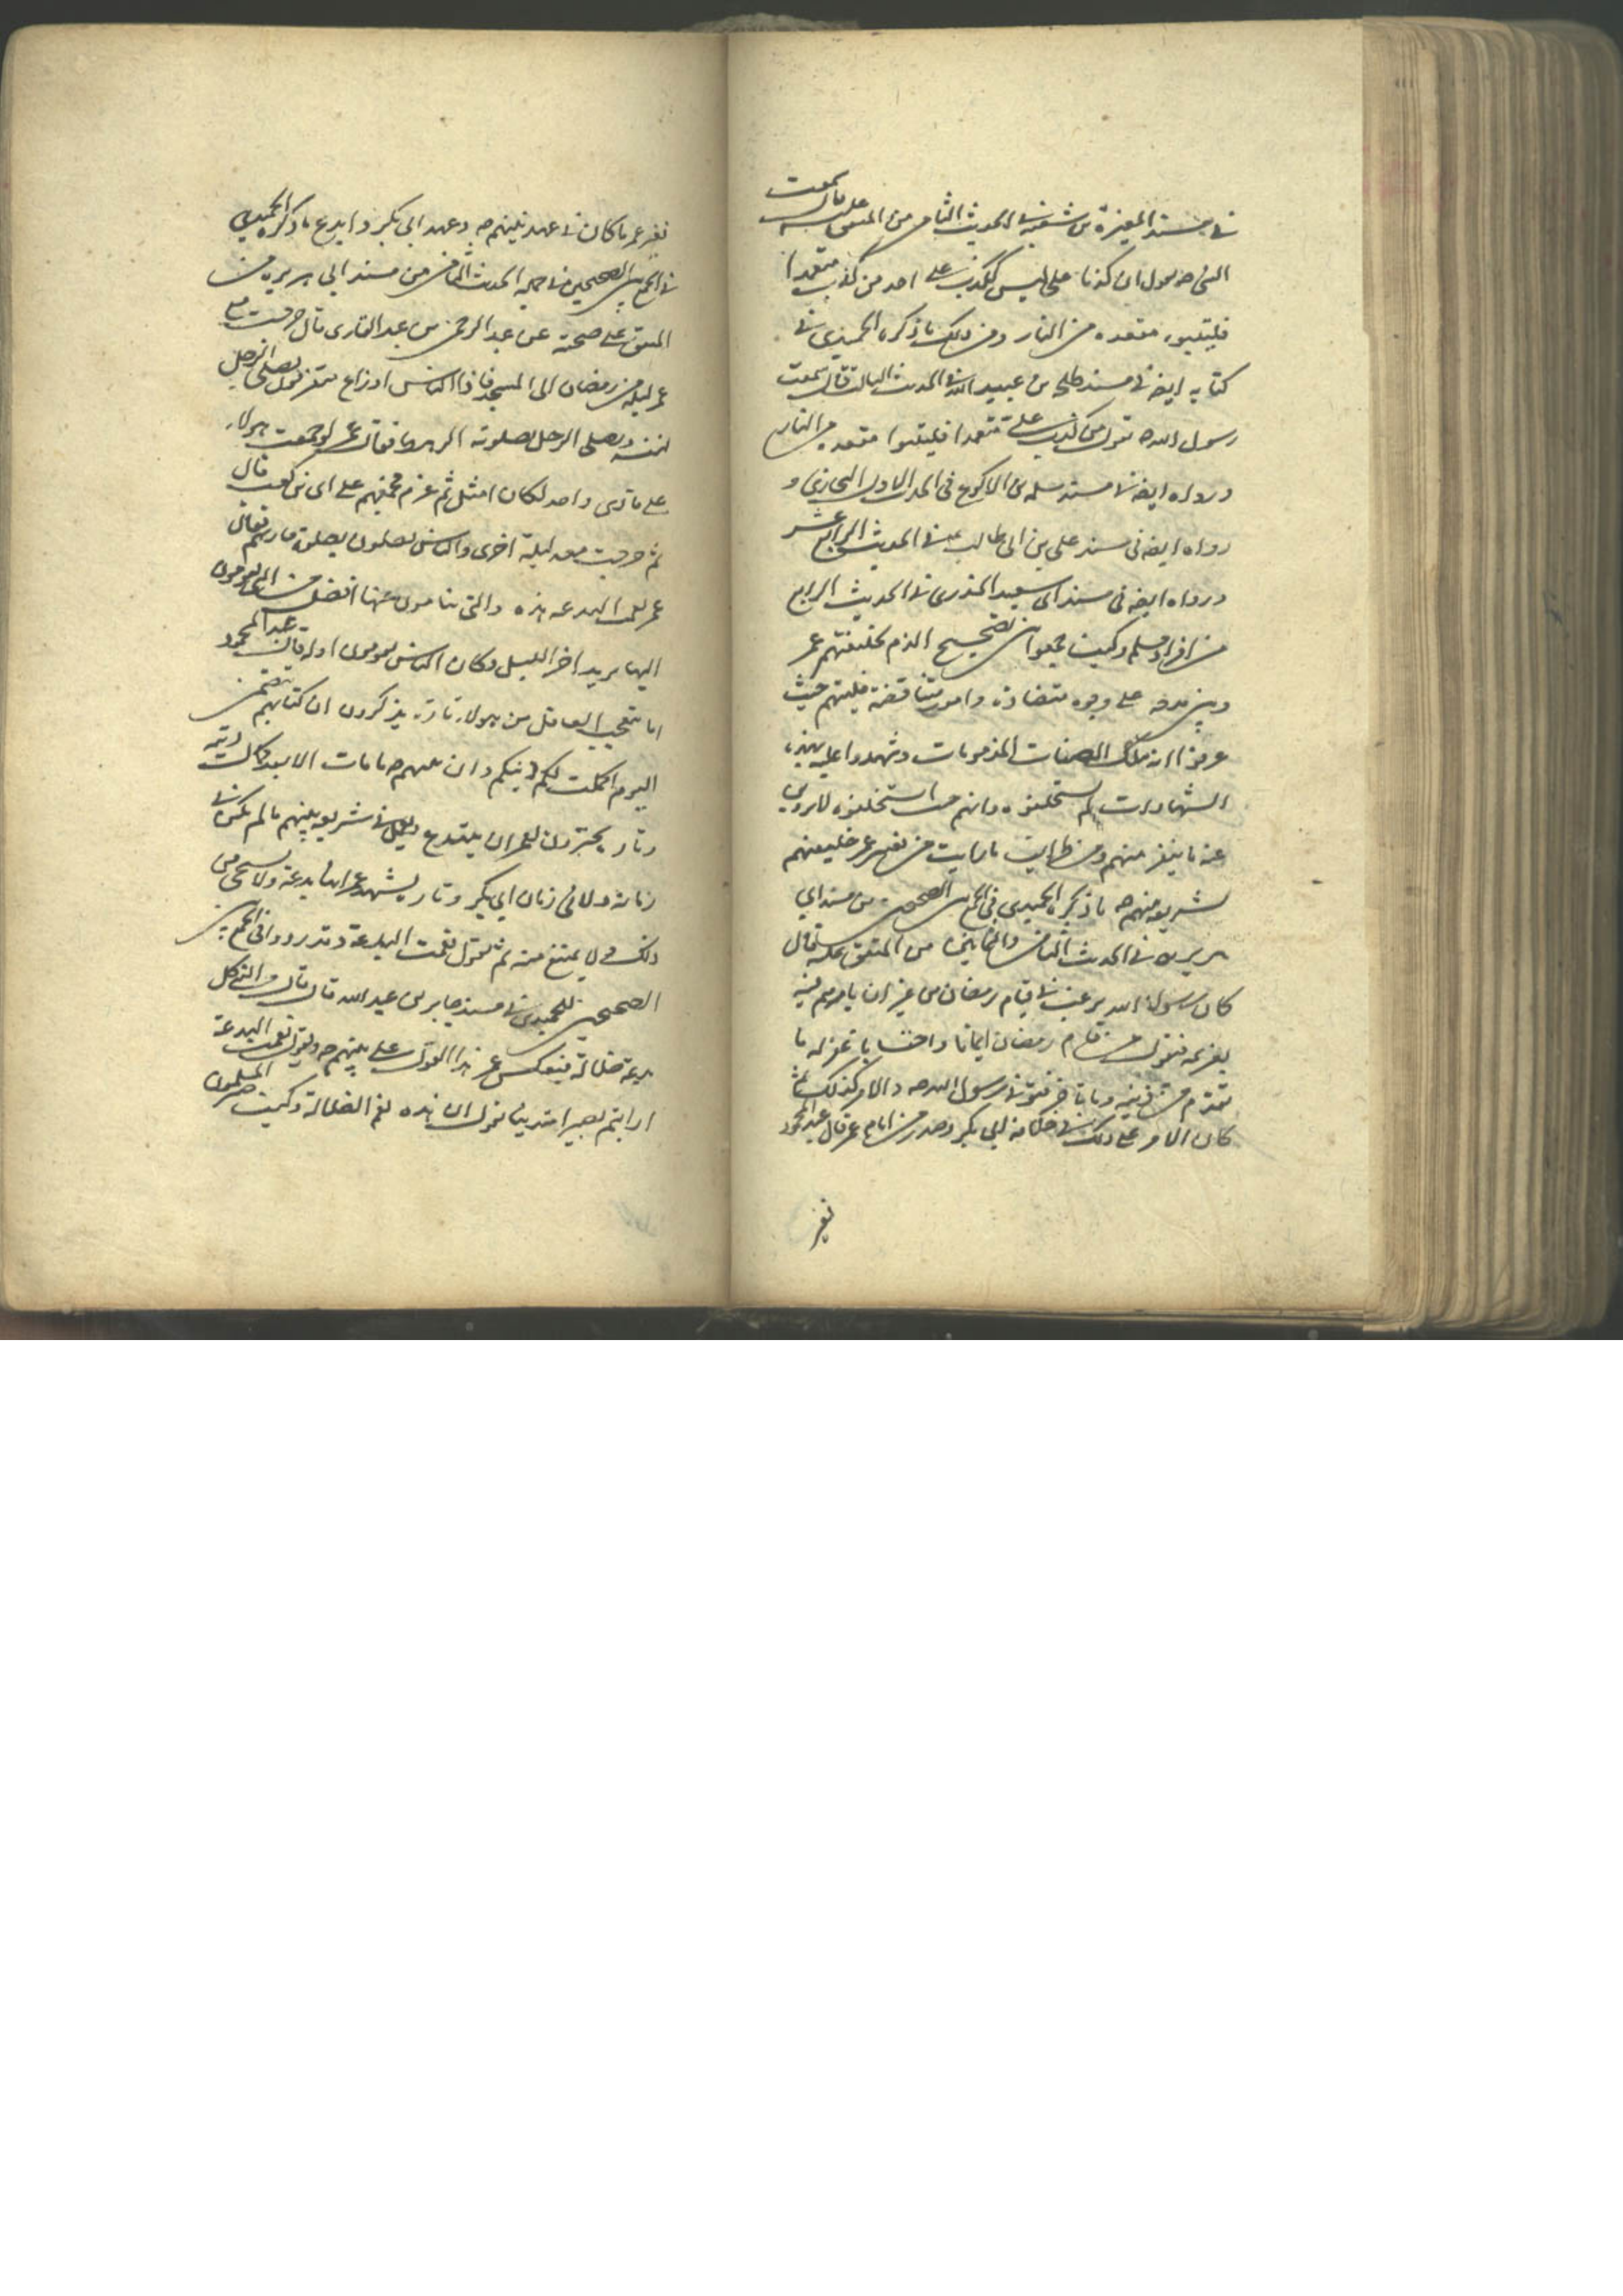 في مسند المغيرة بن شعبة في الحديث الثامن من المتفق عليه قال سمعت
النبي ص يقول ان كذبا علي ليس ككذب على احد من كذب متعمدا
فليتبوء مقعده من النار ومن ذلك ما ذكره الحميدي في
كتابه ايضا في مسند طلحة بن عبيد الله في الحديث الثالث قال سمعت
رسول الله ص يقول من كذب علي متعمدا فليتبوا مقعده من النار
ورواه ايضا في مسند سلمه بن الاكوع في الحديث الاول البخاري و
رواه ايضا في مسند علي بن ابي طالب ع في الحديث الرابع عشر
ورواه ايضا في مسند ابي سعيد الخدري في الحديث الرابع
من افراد مسلم وكيف جمعوا بين تصحيح الذم لخليفتهم عمر
وبين مدحه على وجوه متضادة وامور متناقضة فليتهم حيث
عرفوا انه تلك الصفات المذمومات وشهدوا عليه بهذه
الشهادات لم يستخلفوه وانهم حيث استخلفوه لا يروي
عنه ما ينفر منهم ومن طرايف ما رايت من تغيير عمر خليفتهم
لشريعة نبيهم ص ما ذكره الحميدي في الجمع بين الصحيحين من مسند ابي
هريره في الحديث الثامن والثمانين من المتفق عليه قال
كان رسول الله يرغب في قيام رمضان من غير ان يامرهم فيه
بعزيمة فيقول من قام رمضان ايمانا واحتسابا غفر له ما
تقدم من ذنبه وما تاخر فتوفي رسول الله ص والامر كذلك ثم
كان الامر على ذلك في خلافة ابي بكر وصدر من ايام عمر قال عبد المحمود
فغير
فغير عمر ما كان في عهد نبيهم ص وعهد ابي بكر وابدع ما ذكره الحميدي
في الجمع بين الصحيحين في الحديث الثامن من مسند ابي هريره من
المتفق على صحته عن عبد الرحمن بن عبد القاري قال خرجت مع
عمر ليلة من رمضان الى المسجد فاذا الناس اوزاع متفرقون يصلي الرجل
لنفسه ويصلي الرجل بصلوته الرهط فقال عمر لو جمعت هولاء
على قاري واحد لكان امثل ثم عزم فجمعهم على ابي بن كعب قال
ثم خرجت معه ليلة اخرى والناس يصلون بصلوة قارئهم فقال
عمر نعمت البدعة هذه والتي تنامون عنها افضل من التي تقومون
اليها يريد اخر الليل وكان الناس يقومون اوله قال عبد المحمود
اما يتعجب العاقل من هولاء تارة يذكرون ان كتابهم يتضمن
اليوم اكملت لكم دينكم وان نبيهم ص ما مات الا بعد كمال دينه
وتارة يجيزون لعمر ان يبتدع ويبدل في شريعة نبيهم ما لم يكن في
زمانه ولا في زمان ابي بكر وتارة يشهد عمر انها بدعة ولا يستحي من
ذلك ولا يمتنع منه ثم يقول نعمت البدعة وقد رووا في الجمع بين
الصحيحين للحميدي في مسند جابر بن عبد الله قال قال ص وآله كل
بدعة ضلالة فيعكس عمر هذا القول على نبيهم ص ويقول نعمت البدعة
ارايتم بصيرا متدينا يقول ان هذه نعم الضلالة وكيف صار المسلمون